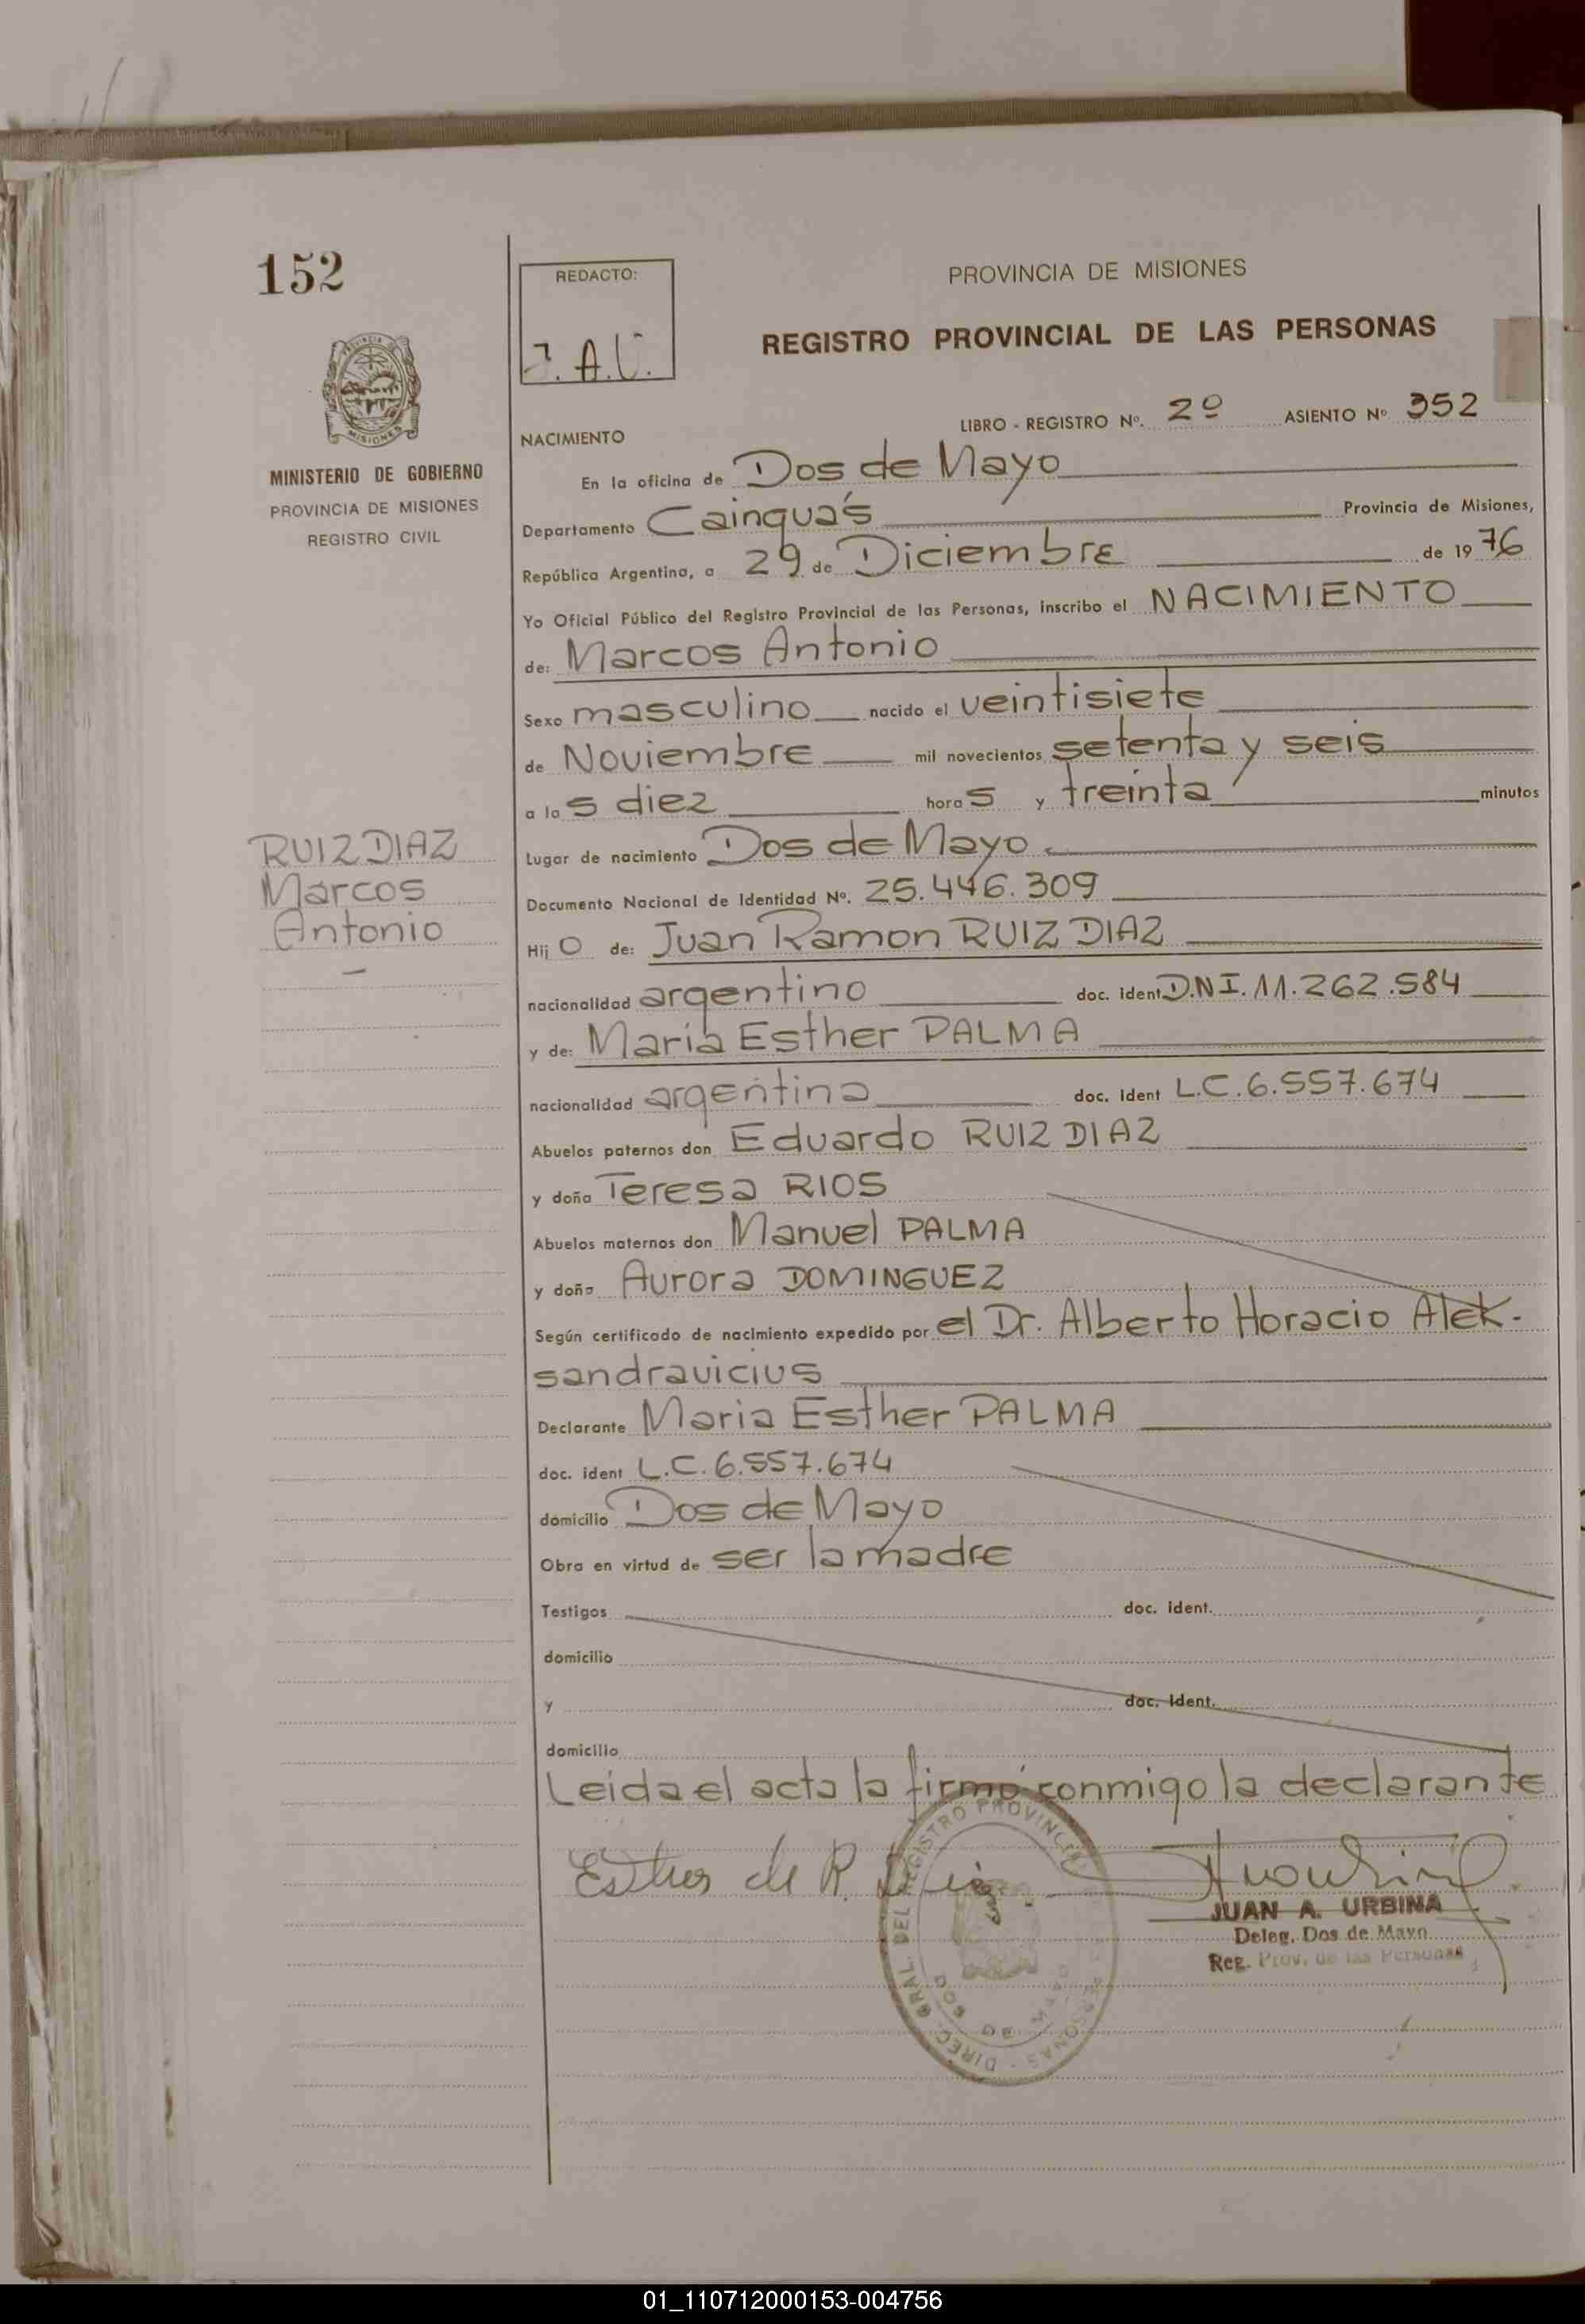 152
REDACTO:
J. A. U.
PROVINCIA DE MISIONES
REGISTRO PROVINCIAL DE LAS PERSONAS
MISIONES
MINISTERIO DE GOBIERNO
PROVINCIA DE MISIONES
REGISTRO CIVIL
LIBRO - REGISTRO Nº. 2º ASIENTO Nº 352
NACIMIENTO
En la oficina de Dos de Mayo
Departamento Cainguás Provincia de Misiones,
República Argentina, a 29 de Diciembre de 1976
Yo Oficial Público del Registro Provincial de las Personas, inscribo el NACIMIENTO
de: Marcos Antonio
Sexo masculino nacido el veintisiete
de Noviembre mil novecientos setenta y seis
a las diez horas y treinta minutos
RUIZ DIAZ
Marcos
Antonio
Lugar de nacimiento Dos de Mayo
Documento Nacional de Identidad Nº. 25.446.309
Hijo de: Juan Ramon RUIZ DIAZ
nacionalidad argentino doc. ident D.N.I. 11.262.584
y de: Maria Esther PALMA
nacionalidad argentina doc. ident L.C. 6.557.674
Abuelos paternos don Eduardo RUIZ DIAZ
y doña Teresa RIOS
Abuelos maternos don Manuel PALMA
y doña Aurora DOMINGUEZ
Según certificado de nacimiento expedido por el Dr. Alberto Horacio Alek-
sandravicius
Declarante Maria Esther PALMA
doc. ident L.C. 6.557.674
domicilio Dos de Mayo
Obra en virtud de ser la madre
Testigos doc. ident.
domicilio
y doc. ident.
domicilio
Leida el acta la firmó conmigo la declarante
Esther de R. Diaz
JUAN A. URBINA
Deleg. Dos de Mayo
Reg. Prov. de las Personas
DIREC. GRAL. DEL REGISTRO PROVINCIAL DE LAS PERSONAS
DOS DE MAYO
01_110712000153-004756